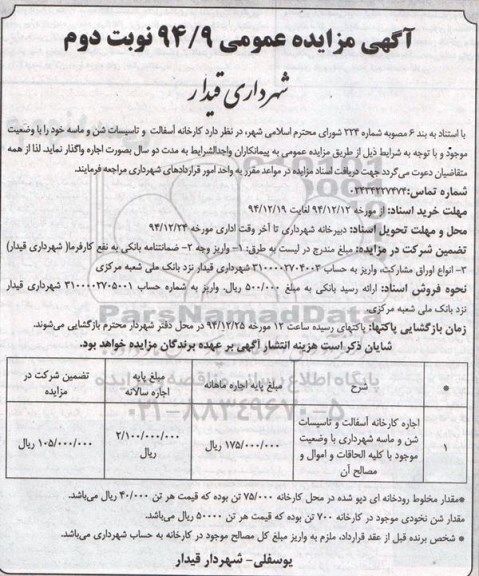 آگهی مزایده عمومی ۹۴/۹ نوبت دوم
شهرداری قیدار
با استناد به بند ۶ مصوبه شماره ۲۲۴ شورای محترم اسلامی شهر، در نظر دارد کارخانه آسفالت و تاسیسات شن و ماسه خود را با وضعیت
موجود و با توجه به شرایط ذیل از طریق مزایده عمومی به پیمانکاران واجدالشرایط به مدت دو سال بصورت اجاره واگذار نماید. لذا از همه
متقاضیان دعوت می‌گردد جهت دریافت اسناد مزایده در مواعد مقرر به واحد امور قراردادهای شهرداری مراجعه فرمایند.
شماره تماس: ۰۲۴۳۴۲۲۷۴۷۴
مهلت خرید اسناد: از مورخه ۹۴/۱۲/۱۲ لغایت ۹۴/۱۲/۱۹
محل و مهلت تحویل اسناد: دبیرخانه شهرداری تا آخر وقت اداری مورخه ۹۴/۱۲/۲۴
تضمین شرکت در مزایده: مبلغ مندرج در لیست به طرق: ۱- واریز وجه ۲- ضمانتنامه بانکی به نفع کارفرما( شهرداری قیدار)
۳- انواع اوراق مشارکت، واریز به حساب ۳۱۰۰۰۰۲۷۰۴۰۰۳ شهرداری قیدار نزد بانک ملی شعبه مرکزی
نحوه فروش اسناد: ارائه رسید بانکی به مبلغ ۵۰۰/۰۰۰ ریال. واریز به شماره حساب ۳۱۰۰۰۰۲۷۰۵۰۰۱ شهرداری قیدار
نزد بانک ملی شعبه مرکزی.
زمان بازگشایی پاکتها: پاکتهای رسیده ساعت ۱۲ مورخه ۹۴/۱۲/۲۵ در محل دفتر شهردار محترم بازگشایی می‌شوند.
شایان ذکر است هزینه انتشار آگهی بر عهده برندگان مزایده خواهد بود.
ParsNamadData
پایگاه اطلاع رسانی مناقصه و مزایده
۰۲۱-۸۸۳۴۹۶۷۰-۵
● شرح مبلغ پایه اجاره ماهانه مبلغ پایه اجاره سالانه تضمین شرکت در مزایده
۱ اجاره کارخانه آسفالت و تاسیسات شن و ماسه شهرداری با وضعیت موجود با کلیه الحاقات و اموال و مصالح آن ۱۷۵/۰۰۰/۰۰۰ ریال ۲/۱۰۰/۰۰۰/۰۰۰ ریال ۱۰۵/۰۰۰/۰۰۰ ریال
●مقدار مخلوط رودخانه ای دپو شده در محل کارخانه ۷۵/۰۰۰ تن بوده که قیمت هر تن ۴۰/۰۰۰ ریال می‌باشد.
مقدار شن نخودی موجود در کارخانه ۷۰۰ تن بوده که قیمت هر تن ۵۰۰۰۰ ریال می‌باشد.
● شخص برنده قبل از عقد قرارداد، ملزم به واریز مبلغ کل مصالح موجود در کارخانه به حساب شهرداری می‌باشد.
یوسفلی- شهردار قیدار